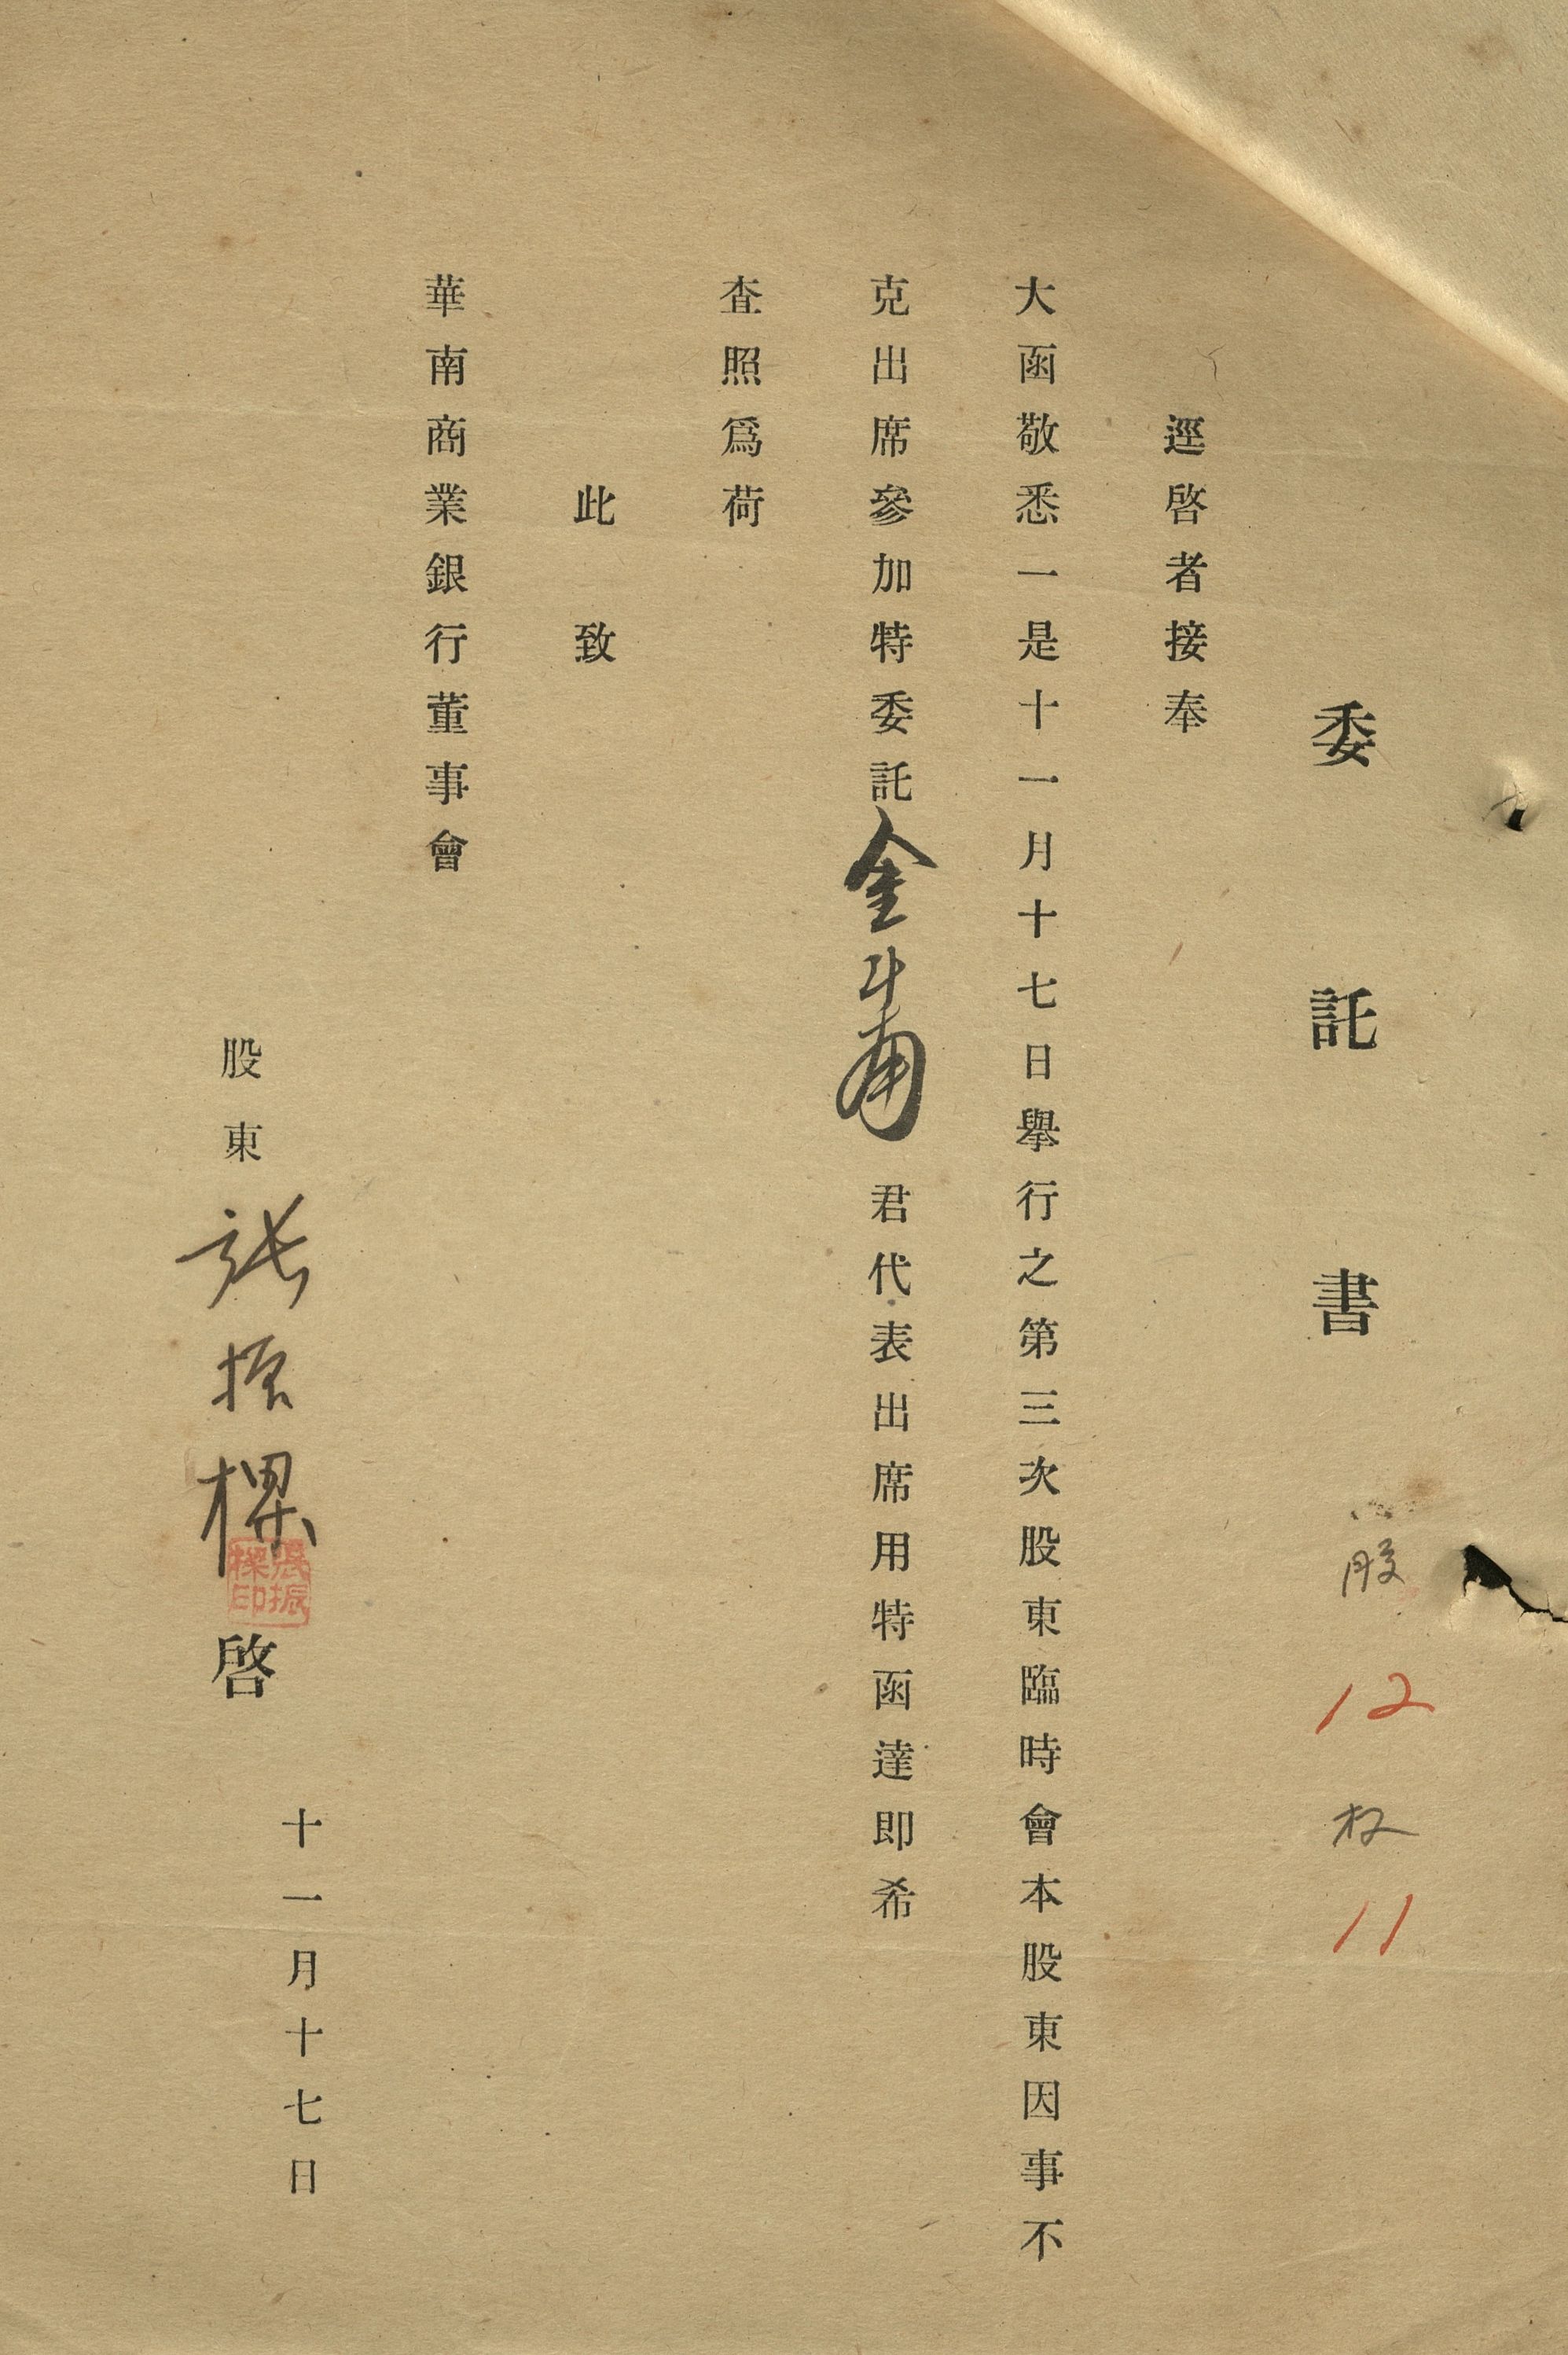 委託書
股 12 权 11
逕啓者接奉
大函敬悉一是十一月十七日舉行之第三次股東臨時會本股東因事不
克出席參加特委託金斗甫君代表出席用特函達即希
查照爲荷
此致
華南商業銀行董事會
十一月十七日
股東張振樑啓
張振樑印